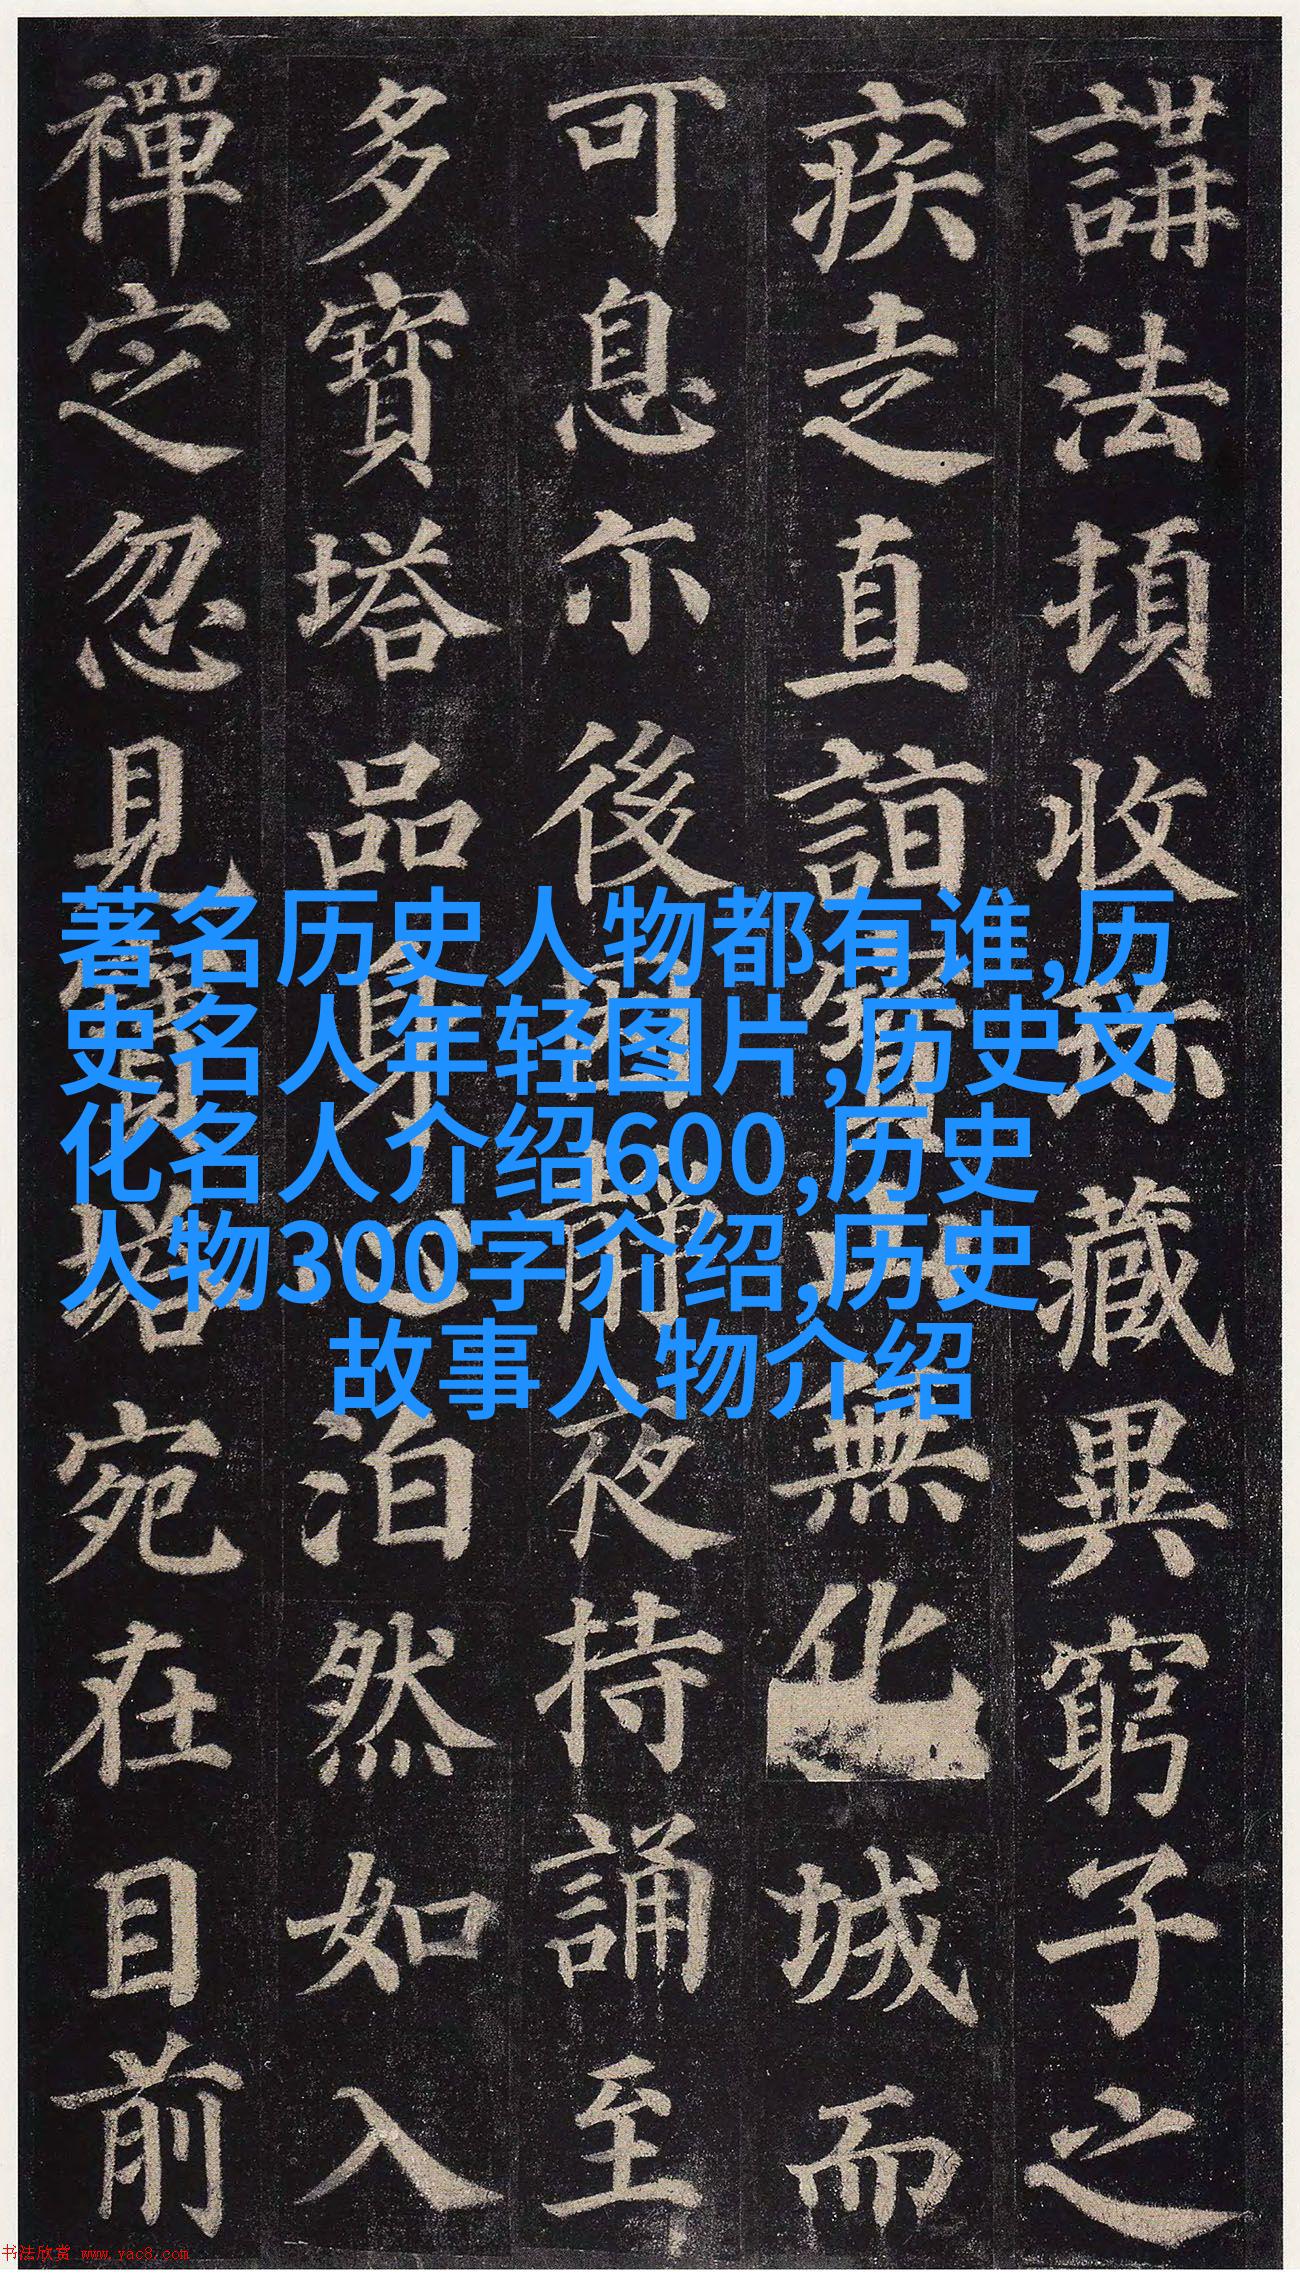 講法頓收珎藏異窮子之
疾走直詣寶山無化城而
可息尒後因靜夜持誦至
多寶塔品身心泊然如入
禪定忽見寶塔宛在目前
著名历史人物都有谁,历
史名人年轻图片,历史文
化名人介绍600,历史
人物300字介绍,历史
故事人物介绍
书法欣赏 www.yac8.com